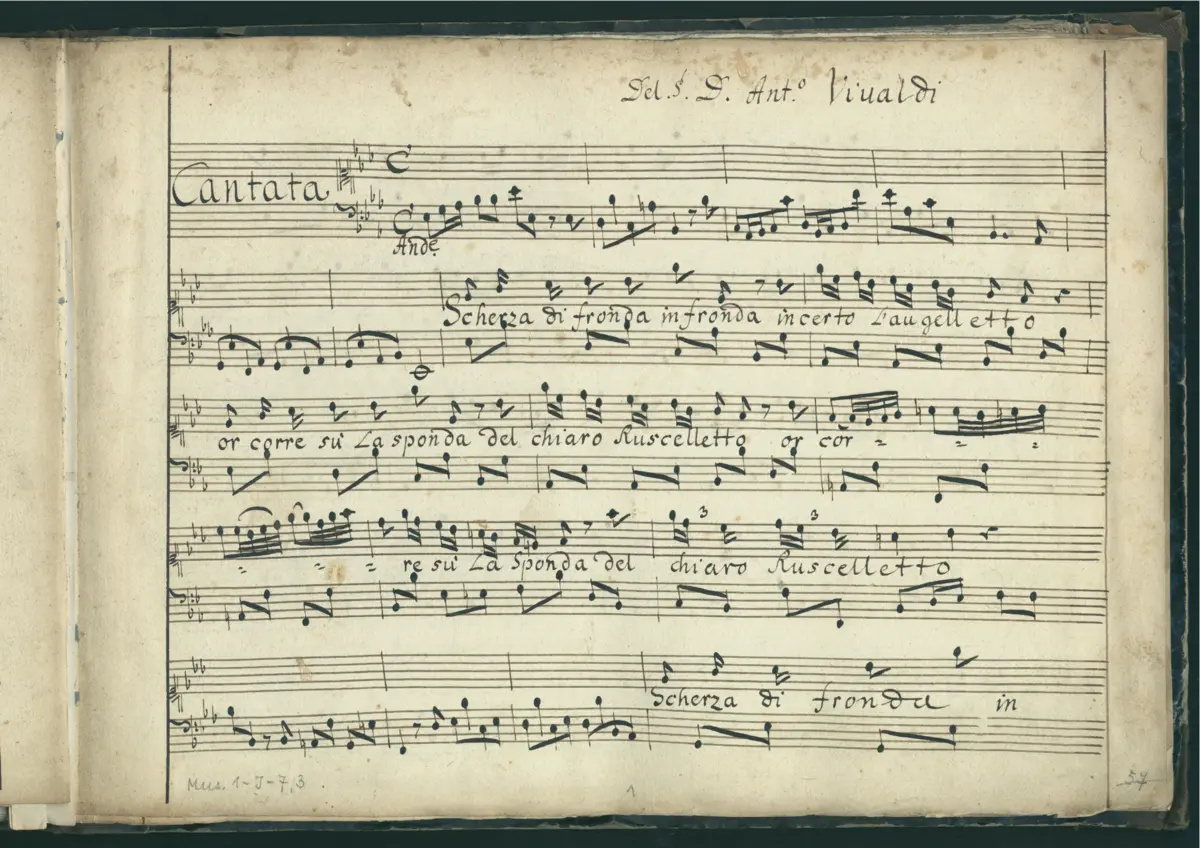 Del S. D. Ant.º Vivaldi
Cantata
C
C
And.e
Scherza di fronda in fronda incerto L'augelletto
or corre sù La sponda del chiaro Ruscelletto or cor - - -
- - - re sù La Sponda del chiaro Ruscelletto
3 3
Scherza di fronda in
Mus. 1-J-7,3
1
57